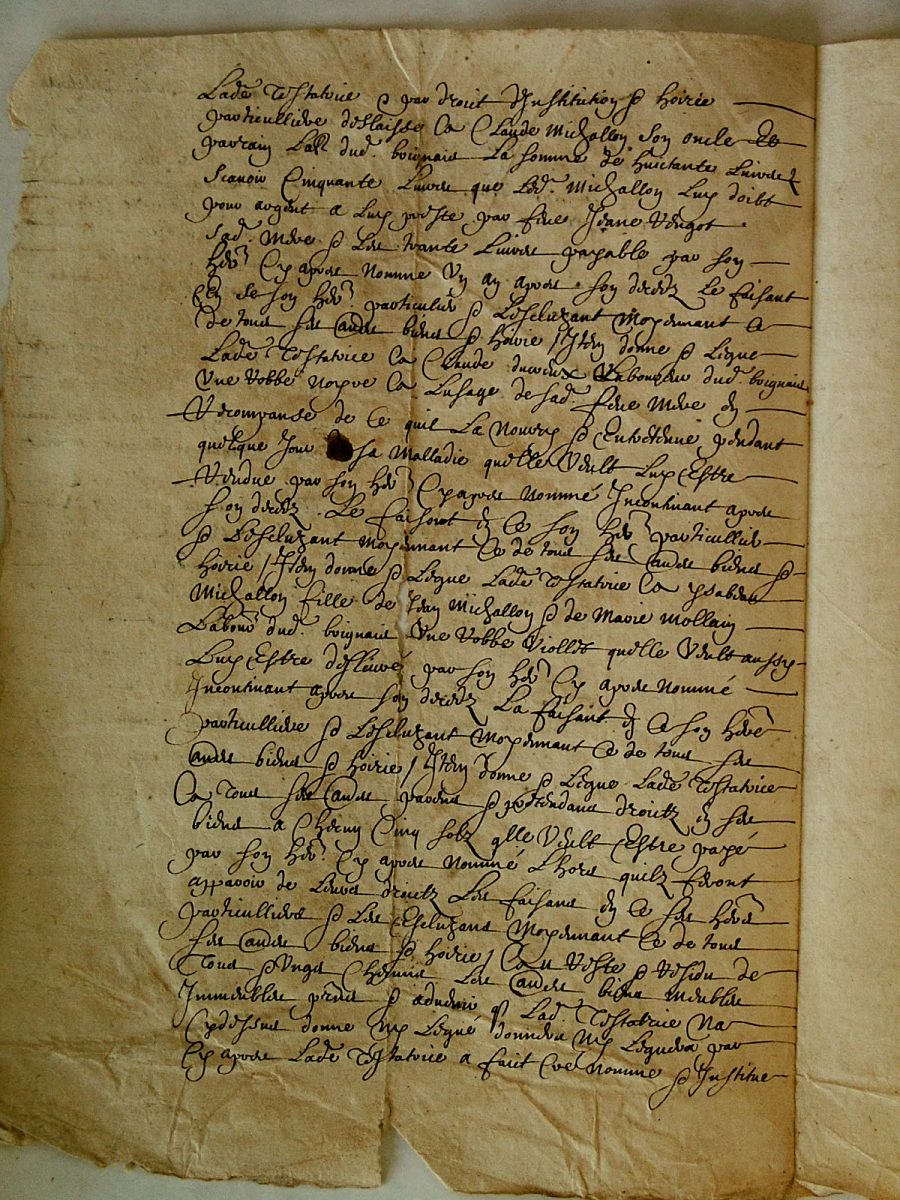 Lade testatrice & par droit d'institution & hoirie
particulliere deslaisse a Claude Michallon son oncle &
parrain lab dud. boignais la somme de huictante livres
scavoir cinquante livres que led. Michallon luy doibt
pour argent a luy preste par feue Jeane
sad. mere & les trante livres payable par son
her cy apres nomme un an apres son decetz le faisant
en ce son her particulier & l'excluzant moyennant ce
de tous ses aultres biens & hoirie / Item donne & legue
lade testatrice a Claude laboureur dud. boignais
une robbe noyre a l'usage de sad. feue mere en
recompanse de ce quil la nourry & entretenue pendant
quelque jour sa malladie quelle veult luy estre
rendue par son her cy apres nommé incontinant apres
son decetz le faisant en ce son her particullier
& l'excluzant moyennant ce de tous ses aultres biens &
hoirie / Item donne & legue lade testatrice a ysabeau
Michallon fille de Jean Michallon & de Marie Mollain
labour dud. boignais une robbe viollet quelle veult aussy
luy estre deslivré par son her cy apres nommé
incontinant apres son decetz la faisant en ce son here
particulliere & l'excluzant moyennant ce de tous ses
aultres biens & hoirie / Item donne & legue lade testatrice
a tous ses aultres parens & pretendans droictz en ses
biens a chacun cinq solz qlle veult estre payé
par son her cy apres nommé lhors quilz feront
apparoir de leurs droictz les faisans en ce ses hers
particulliers & les excluzans moyennant ce de tous
ses aultres biens & hoirie / Et au reste & residu de
tous & ungs chacuns ses aultres biens meubles
immeubles pnts & advenir lad. testatrice na
cy dessus donne ny legué donnera ny leguera par
cy apres lade testatrice a faict creé nomme & institue